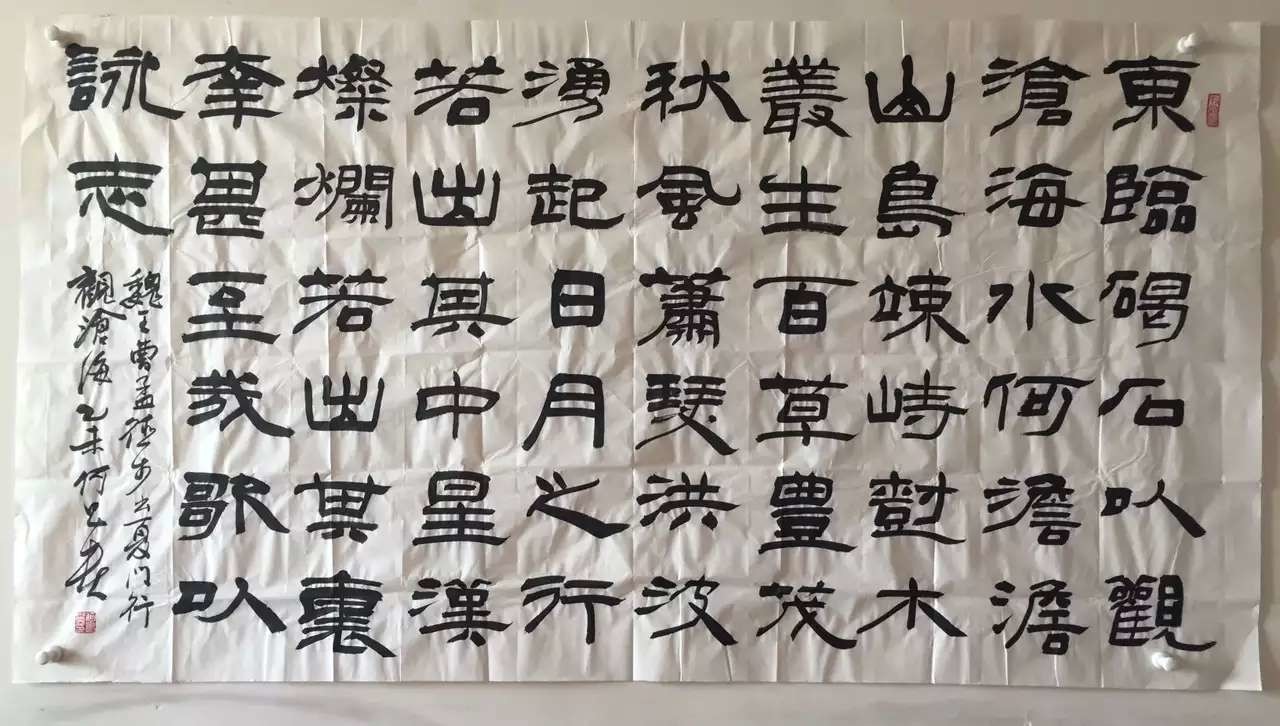 東臨碣石以觀
滄海水何澹澹
山島竦峙樹木
叢生百草豐茂
秋風蕭瑟洪波
湧起日月之行
若出其中星漢
燦爛若出其裏
幸甚至哉歌以
詠志
魏王曹孟德步出夏門行
觀滄海乙未何